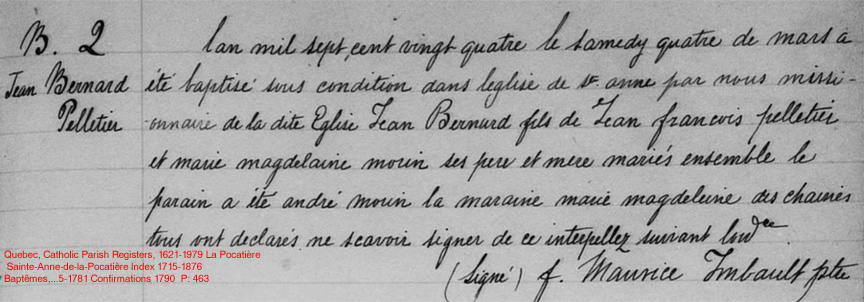 B. 2
Jean Bernard
Pelletier
lan mil sept, cent vingt quatre le samedy quatre de mars a
été baptisé sous condition dans leglise de ste anne par nous missi-
-onnaire de la dite Eglise Jean Bernard fils de Jean francois pelletier
et marie magdelaine morin ses pere et mere mariés ensemble le
parain a été andré morin la maraine marie magdeleine des chaines
tous ont declarés ne scavoir signer de ce interpellez suivant lordce
(Signé) f. Maurice Imbault ptre
Quebec, Catholic Parish Registers, 1621-1979 La Pocatière
Sainte-Anne-de-la-Pocatière Index 1715-1876
Baptêmes,...5-1781 Confirmations 1790 P: 463